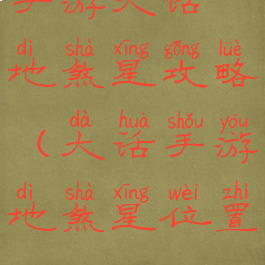 手游大话
dì shà xīng gōng lüè
地煞星攻略
dà huà shǒu yóu
（大话手游
dì shà xīng wèi zhì
地煞星位置